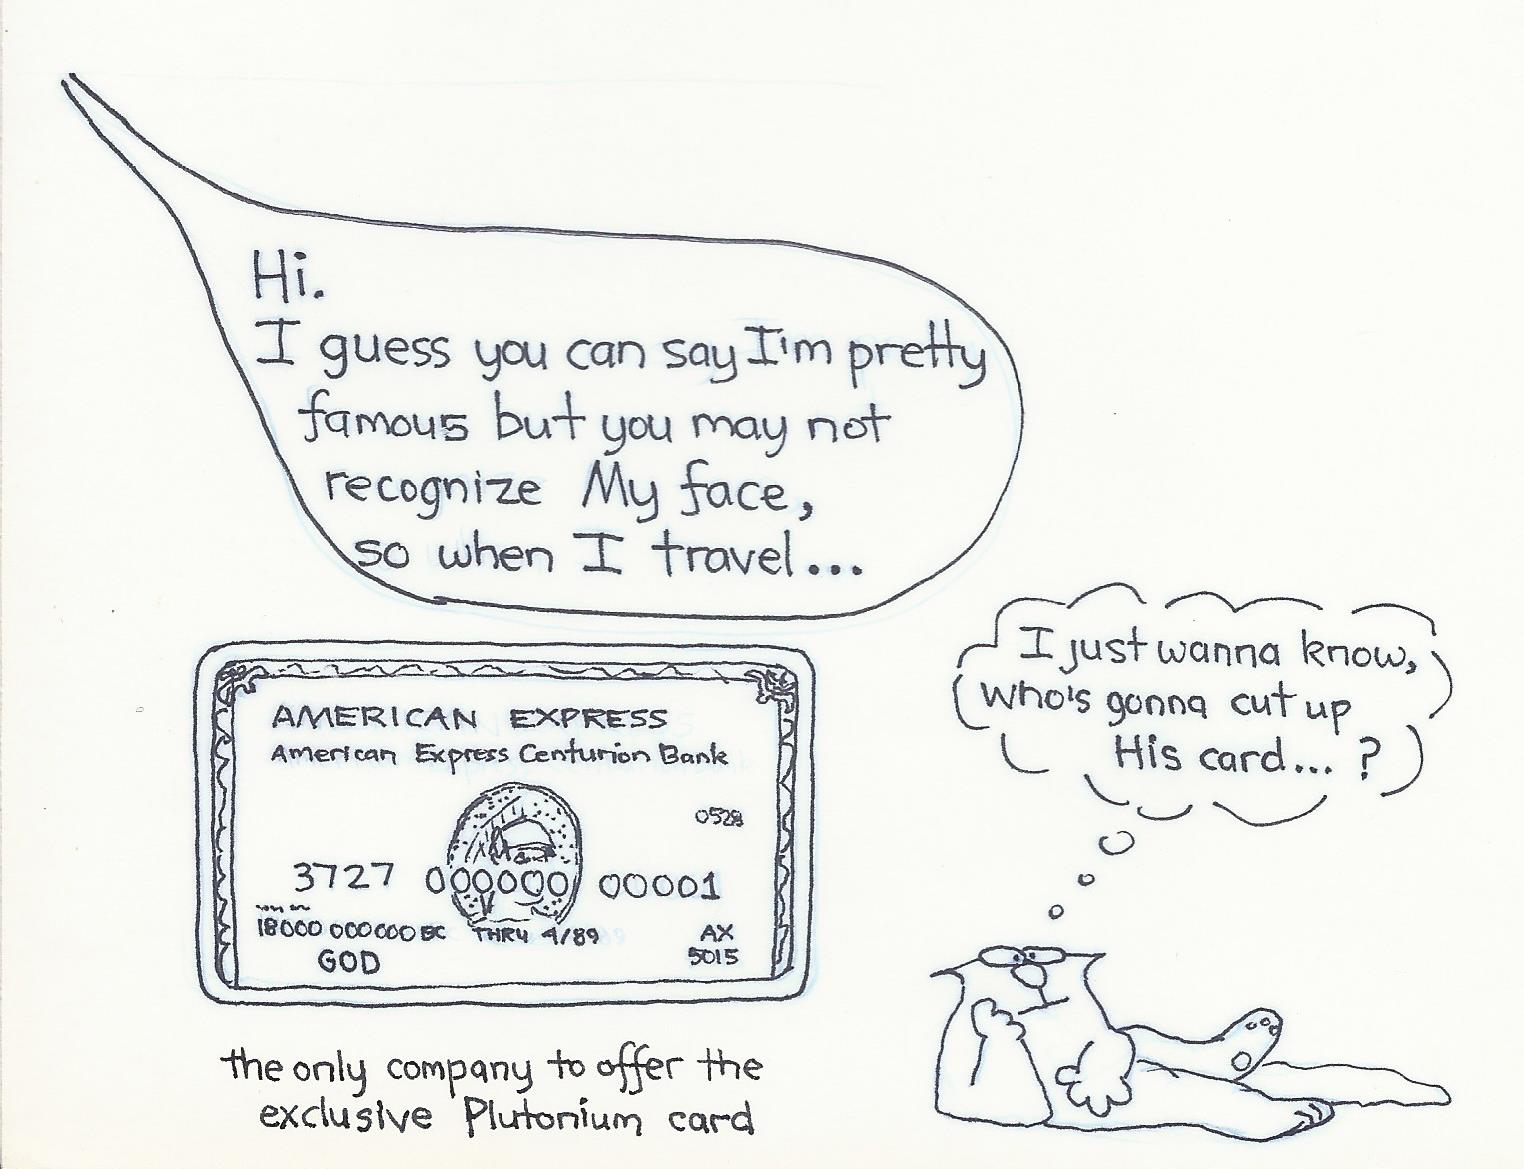 Hi.
I guess you can say I'm pretty
famous but you may not
recognize My face,
so when I travel...
I just wanna know,
who's gonna cut up
His card...?
AMERICAN EXPRESS
American Express Centurion Bank
0528
3727 000000 00001
18000 000000 BC THRU 4/89 AX
GOD 5015
the only company to offer the
exclusive Plutonium card